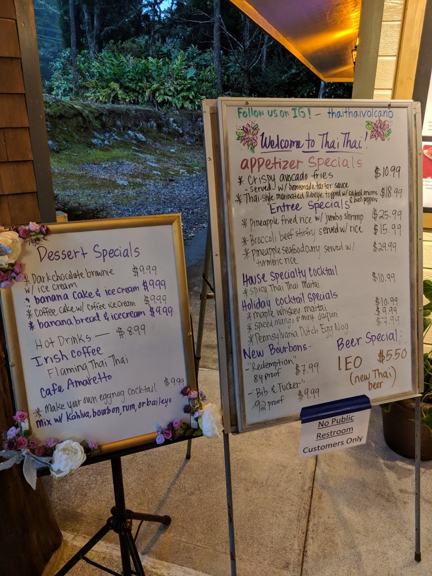 Dessert Specials
* Dark chocolate brownie $9.99
w/ ice cream
* banana cake & ice cream $9.99
* coffee cake w/ coffee ice cream $9.99
* banana bread & icecream $9.99
Hot Drinks — $8.99
Irish Coffee
Flaming Thai Thai
Cafe Amaretto
* Make your own eggnog cocktail $9.99
Mix w/ Kahlua, bourbon, rum, or baileys
Follow us on IG! - thaithaivolcano
Welcome to Thai Thai!
appetizer Specials
* Crispy avocado fries $10.99
- served w/ homemade tartar sauce
* Thai style marinated Ribeye topped w/ onions & bell peppers $18.99
Entree Specials
* Pineapple fried rice w/ jumbo shrimp $25.99
* Broccoli beef stirfry served w/ rice $15.99
* pineapple seafood curry served w/ $29.99
turmeric rice
House Specialty Cocktail
* Spicy Thai Thai Martini $10.99
Holiday cocktail specials
* maple whiskey martini $10.99
* mint $9.99
* Pennsylvania Dutch Egg Nog $7.99
New Bourbons-
- "Redemption" $7.99
84 proof
- "Bib & Tucker" $9.99
92 proof
Beer Special:
LEO $5.50
(new Thai
beer)
No Public
Restroom
Customers Only